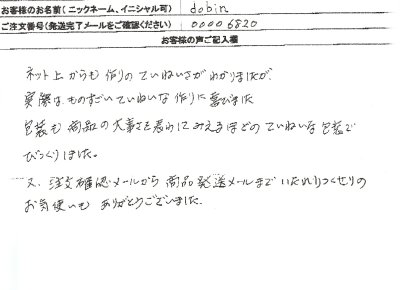 お客様のお名前(ニックネーム、イニシャル可) dobin
ご注文番号(発送完了メールをご確認ください) 00006820
お客様の声ご記入欄
ネット上からも作りのていねいさがわかりましたが、
実際は、ものすごいていねいな作りに喜びました
包装も商品の大事さを表わしてみえるほどのていねいな包装で
びっくりしました。
又、注文確認メールから商品発送メールまでいたれりつくせりの
お気使いもありがとうございました。